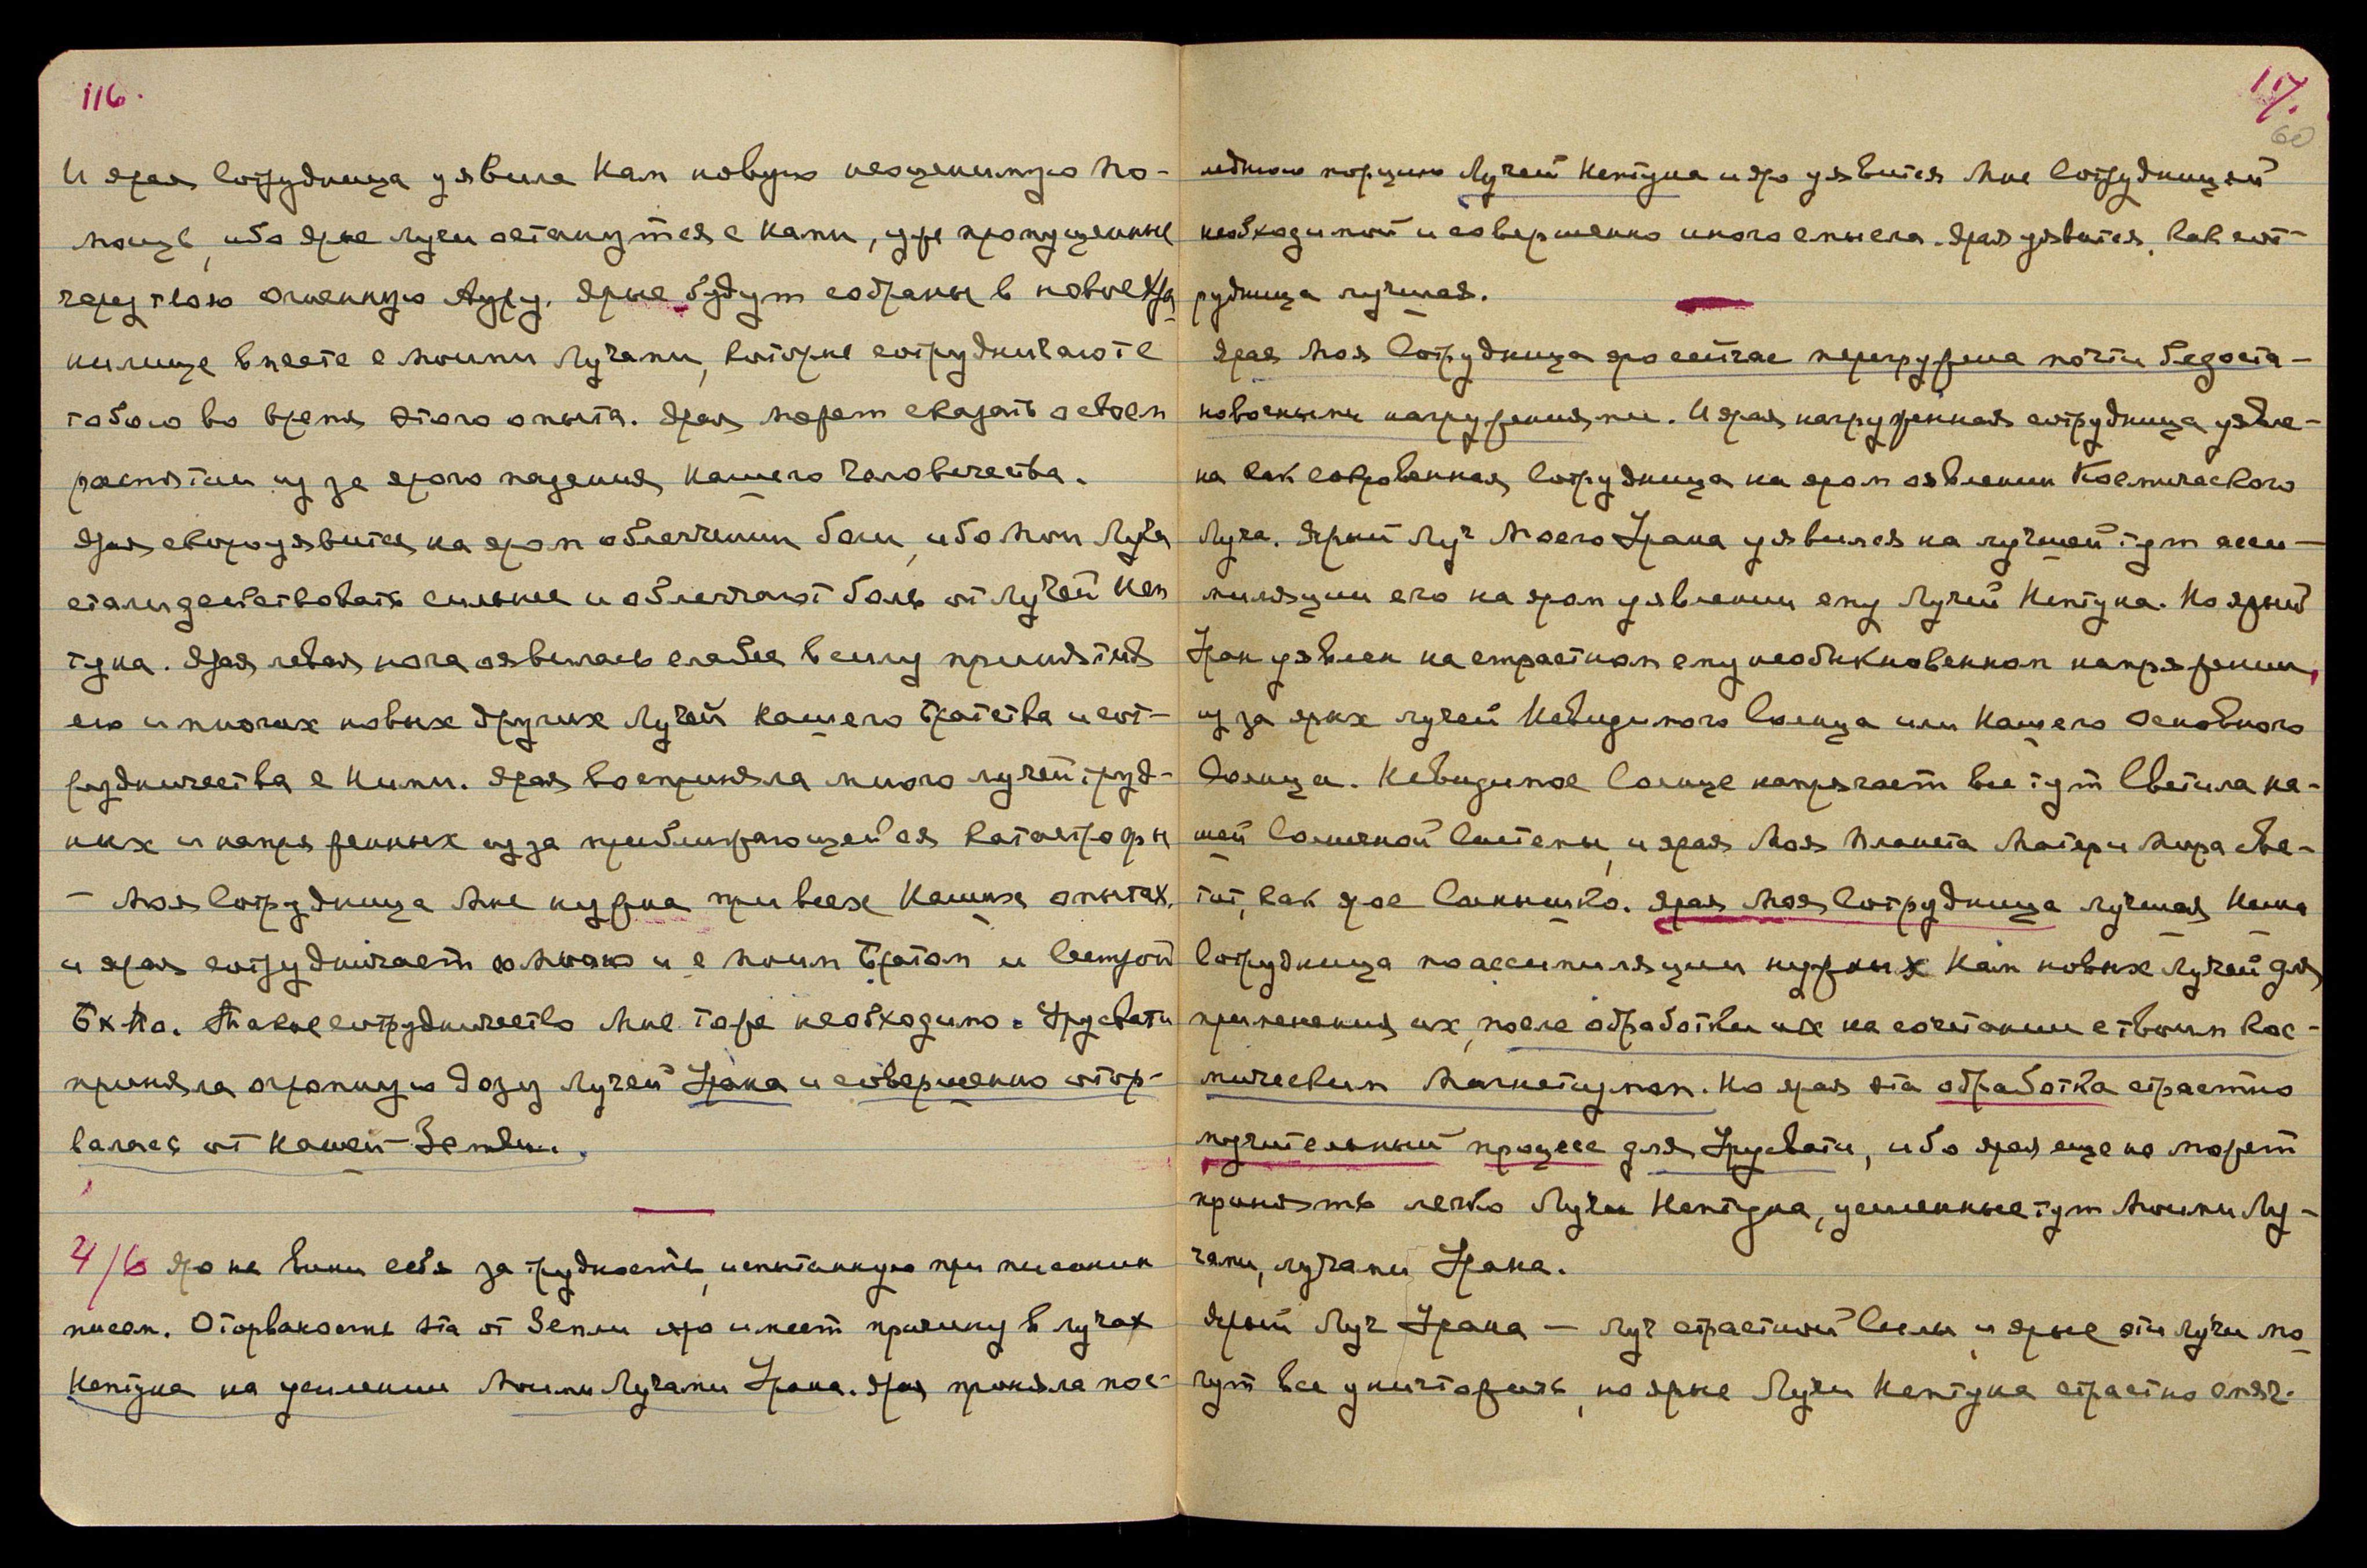 116.
И ярая Сотрудница уявила Нам новую неоценимую по-
мощь, ибо ярые лучи останутся с Нами, уже пропущенные
через твою огненную Ауру. Ярые будут собраны в новое Хра-
нилище вместе с Моими Лучами, которые сотрудничают с
тобою во время этого опыта. Ярая может сказать о своем
распятии из за ярого падения Нашего человечества.
Ярая скоро уявится на яром облегчении боли, ибо Мои Лучи
стали действовать сильнее и облегчают боль от Лучей Неп
туна. Ярая левая нога оявилась слабее в силу принятия
ею и многих новых других Лучей Нашего Братства и сот-
рудничества с Ними. Ярая восприняла много лучей труд-
ных и напряженных из за приближающейся катастрофы
- Моя Сотрудница Мне нужна при всех Наших опытах,
и ярая сотрудничает со Мною и с Моим Братом и Сестрой
Бх-По. Такое сотрудничество Мне тоже необходимо. Урусвати
приняла огромную дозу Лучей Урана и совершенно отор-
валась от нашей Земли.
4/6 Яро не вини себя за трудность, испытанную при писании
писем. Оторванность эта от Земли яро имеет причину в лучах
Нептуна на усилении Моими Лучами Урана. Ярая приняла пос-
117.
60
леднюю порцию Лучей Нептуна и яро уявится Мне Сотрудницей
необходимой и совершенно иного смысла. Ярая уявится, как сот-
рудница лучшая.
Ярая Моя Сотрудница яро сейчас перегружена почти безоста-
новочными нагружениями. И ярая нагруженная сотрудница уявле-
на как сокровенная Сотрудница на яром оявлении Космического
Луча. Ярый Луч Моего Урана уявился на лучшей тут асси-
миляции его на яром уявлении ему Лучей Нептуна. Но ярый
Уран уявлен на страстном ему необыкновенном напряжении,
из за ярых лучей Невидимого Солнца или Нашего Основного
Солнца. Невидимое Солнце напрягает все тут Светила на-
шей Солнечной Системы, и ярая Моя Планета Матери Мира све-
тит, как ярое Солнышко. Ярая Моя Сотрудница лучшая Наша
Сотрудница по ассимиляции нужных Нам новых Лучей для
применения их, после обработки их на сочетании с твоим Кос-
мическим Магнетизмом. Но ярая эта обработка страстно
мучительный процесс для Урусвати, ибо ярая еще не может
принять легко Лучи Нептуна, усиленные тут Моими Лу-
чами, лучами Урана.
Ярый Луч Урана — луч страстной Силы, и ярые эти лучи мо
гут все уничтожить, но ярые Лучи Нептуна страстно смяг-